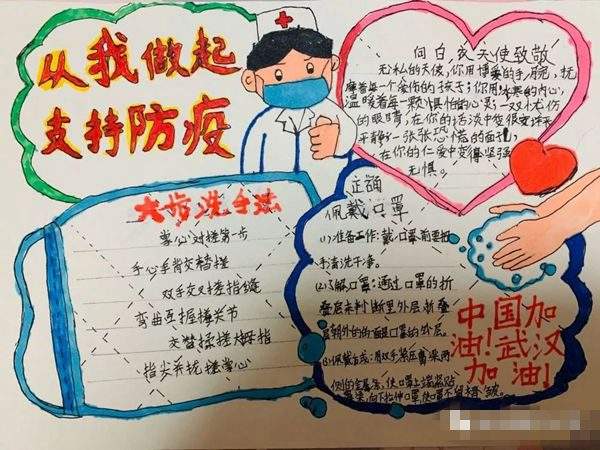 从我做起
支持防疫
向白衣天使致敬
无私的天使,你用博爱的手腕,抚
摩着每一个爱伤的孩子;你用冰寒的内心,
温暖着每一颗惧怕的心灵;一双小忧伤
的眼睛,在你的话淡中变很安
平静;一张张恐慌的面孔,
在你的仁爱中变得坚强
无惧。
六步洗手法
掌心对搓第一步
手心手背交替搓
双手交叉搓指缝
弯曲互握搓关节
交替揉搓大拇指
指尖并拢搓掌心
正确
佩戴口罩
(1)准备工作:戴口罩前要把
手清洗干净。
(2)了解口罩:通过口罩的折
叠层来判断里外层,折叠
层朝外的的面是口罩的外层。
(3)佩戴方法:用双手紧压鼻梁两
侧的金属条,使口罩上端紧贴
鼻梁,向下拉伸口罩,使口罩不留有褶皱
中国加
油!武汉
加油!